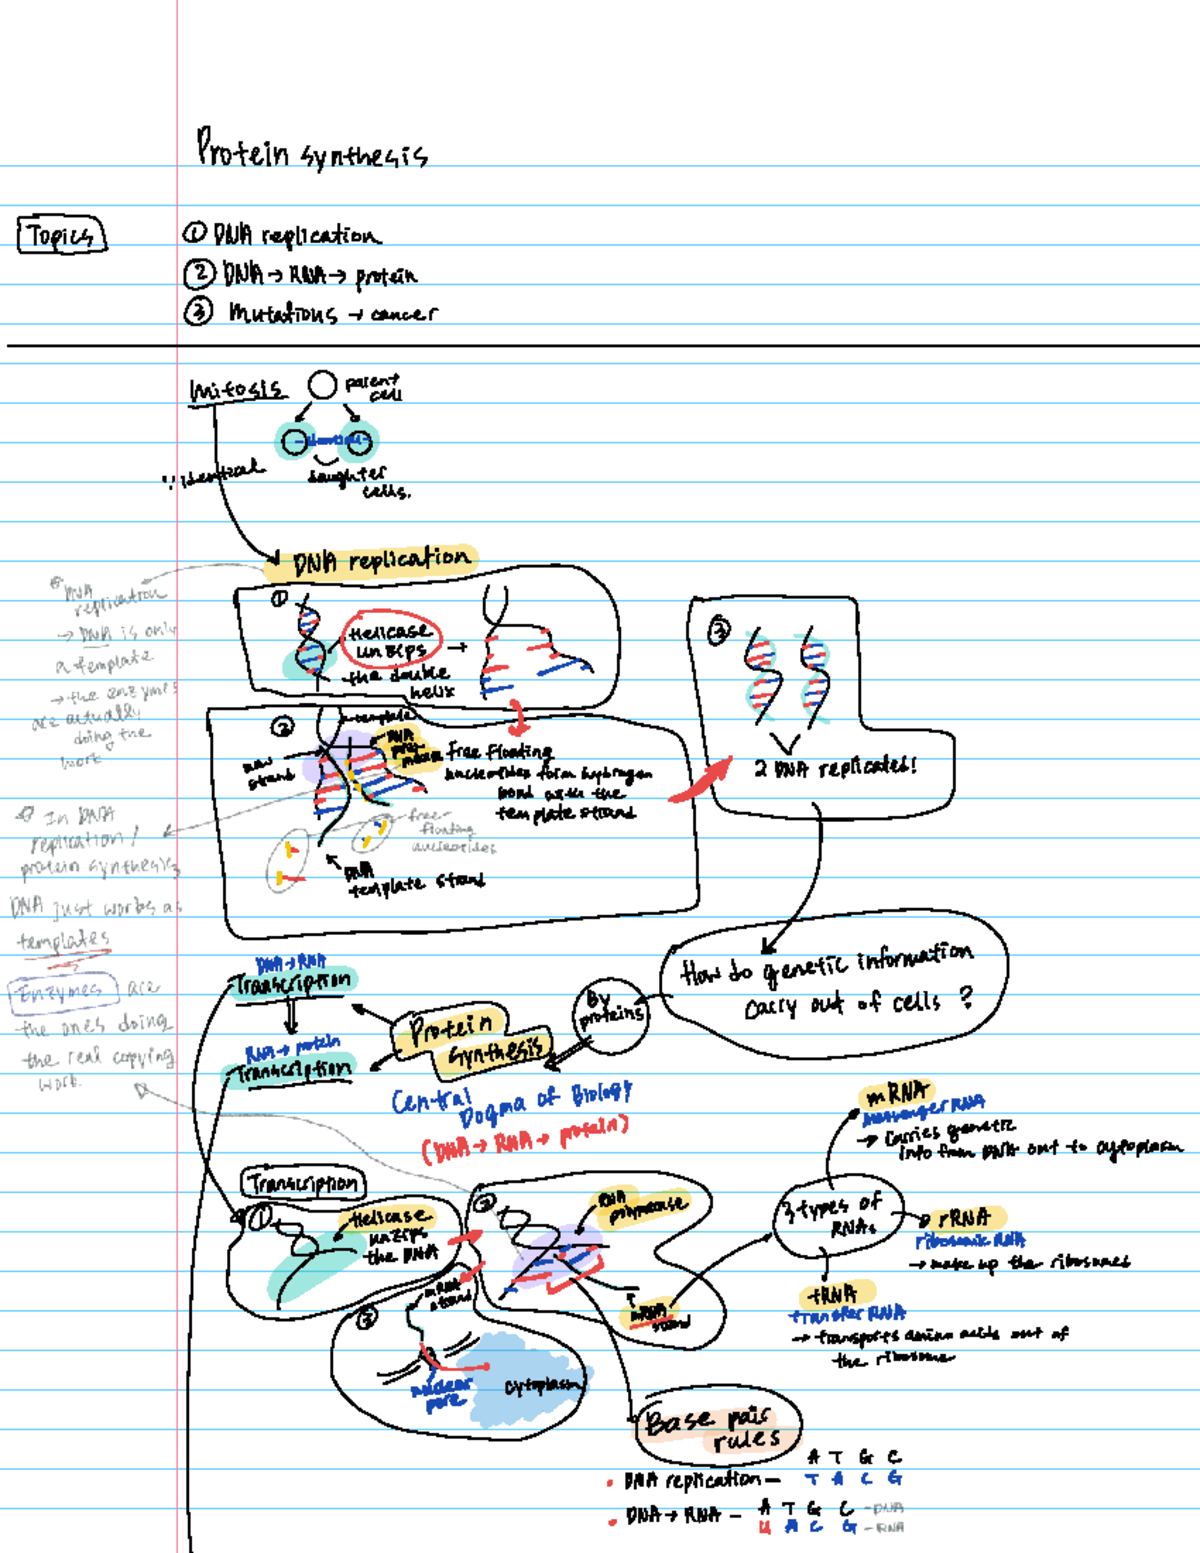 Protein synthesis
Topics
① DNA replication
② DNA → RNA → protein
③ Mutations → cancer
Mitosis
parent
cell
∵ identical
daughter
cells.
DNA replication
DNA
replication
→ DNA is only
a template
→ the enzymes
are actually
doing the
work
①
Helicase
unzips
the double
helix
②
template
DNA
new
strand
free floating
nucleotides form hydrogen
bond with the
template strand
free
floating
nucleotides
DNA
template strand
③
2 DNA replicated!
In DNA
replication/
protein synthesis
DNA just works as
templates
Enzymes are
the ones doing
the real copying
work.
How do genetic information
carry out of cells ?
By
proteins
Protein
synthesis
DNA → RNA
Transcription
RNA → protein
Transcription
Central
Dogma of Biology
(DNA → RNA → protein)
Transcription
①
Helicase
unzips
the DNA
②
RNA
polymerase
mRNA
strand
③
mRNA
strand
nuclear
pore
cytoplasm
3 types of
RNAs
mRNA
messenger RNA
→ carries genetic
info from DNA out to cytoplasm
rRNA
ribosomic RNA
→ make up the ribosomes
tRNA
transfer RNA
→ transports amino acids out of
the ribosome
Base pair
rules
A T G C
• DNA replication — T A C G
• DNA → RNA — A T G C — DNA
U A C G — RNA